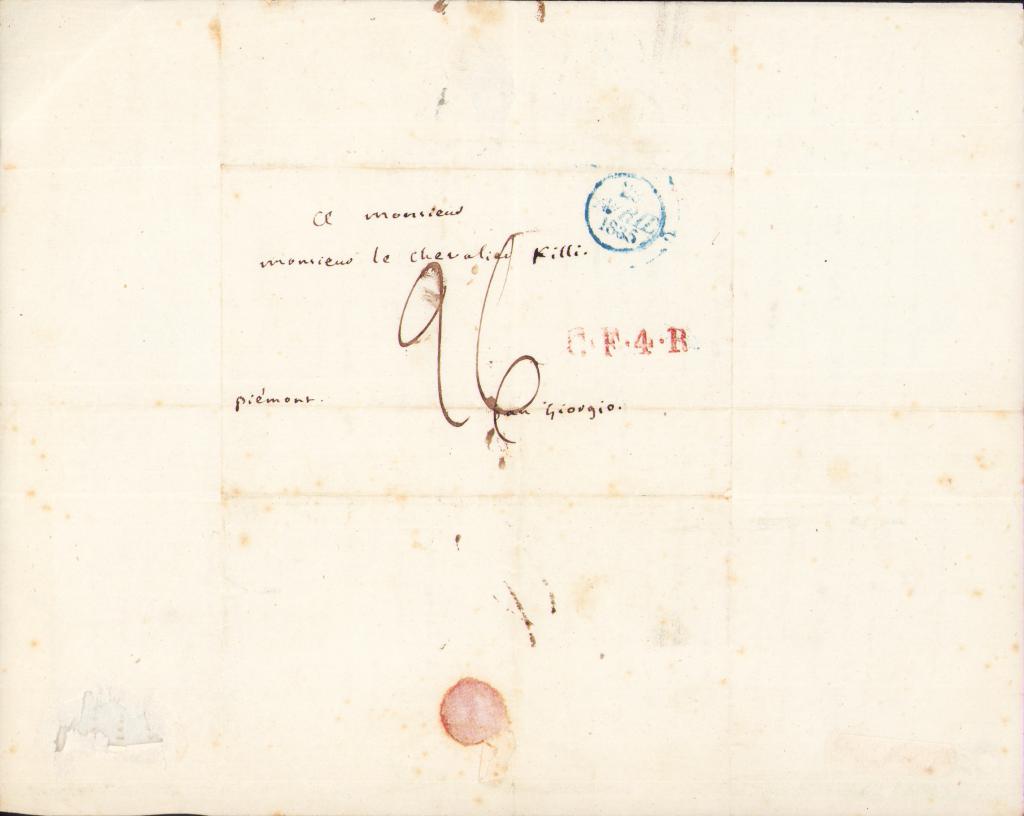 a monsieur
monsieur le chevalier Killi.
26
piémont. san Giorgio.
1835
C.F.4.R